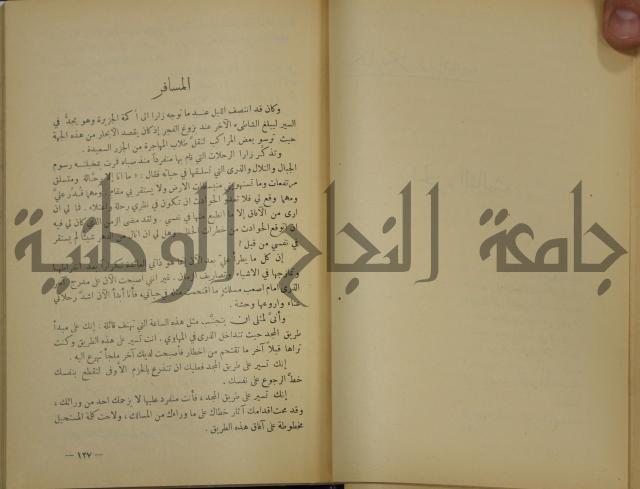 المسافر
وكان قد انتصف الليل عندما توجه زارا الى أكمة الجزيرة وهو يجدُّ في
السير ليبلغ الشاطىء الآخر عند بزوغ الفجر إذ كان يقصد الابحار من هذه الجهة
حيث ترسو بعض المراكب لنقل طلاب المهاجرة من الجزر السعيدة .
وتذكر زارا الرحلات التي قام بها منفرداً منذ صباه فمرت بمخيلته رسوم
الجبال والتلال والذرى التي تسلقها في حياته فقال : « ما انا إلا رحالة ومتسلق
مرتفعات وما تستهويني منبسطات الارض ولا يستقر بي مقام . ومهما قُدر عليَّ
ومهما وقع لي فلا تعدو الحوادث ان تكون في نظري رحلة واعتلاء . فما لي ان
ارى من الآفاق إلا ما انطبع منها في نفسي . ولقد مضى الزمن الذي كان لي فيه
ان اتوقع الحوادث من خطرات الحظ . وهل لي ان انال من الدهر شيئاً لم يستقر
في نفسي من قبل ؟
إن كل ما يطرأ عليَّ بعد الآن إنما هو
في الاشياء وتصاريف الزمان . غير انني اصبحت الآن على مدرج
الذرى امام اصعب مسلك ما اقتحمت مثله في حياتي ، فأنا أبدأ الآن اشد رحلاتي
عناء واروعها وحشة .
وأنى لمثلي ان يتجنب مثل هذه الساعة التي تهتف قائلة : إنك على مبدأ
طريق المجد حيث تتداخل الذرى في المهاوي . انت تسير على هذه الطريق وكنت
تراها قبلاً آخر ما تقتحم من اخطار فأصبحت لديك آخر ملجأ تهرع اليه .
إنك تسير على طريق المجد فعليك ان تتذرع بالحزم الأوفى لتقطع بنفسك
خط الرجوع على نفسك .
إنك تسير على طريق المجد ، فأنت منفرد عليها لا يزحمك احد من ورائك ،
وقد محت اقدامك آثار خطاك على ما وراءك من المسالك ، ولاحت كلمة المستحيل
مخطوطة على آفاق هذه الطريق .
— ١٢٧ —
جامعة النجاح الوطنية